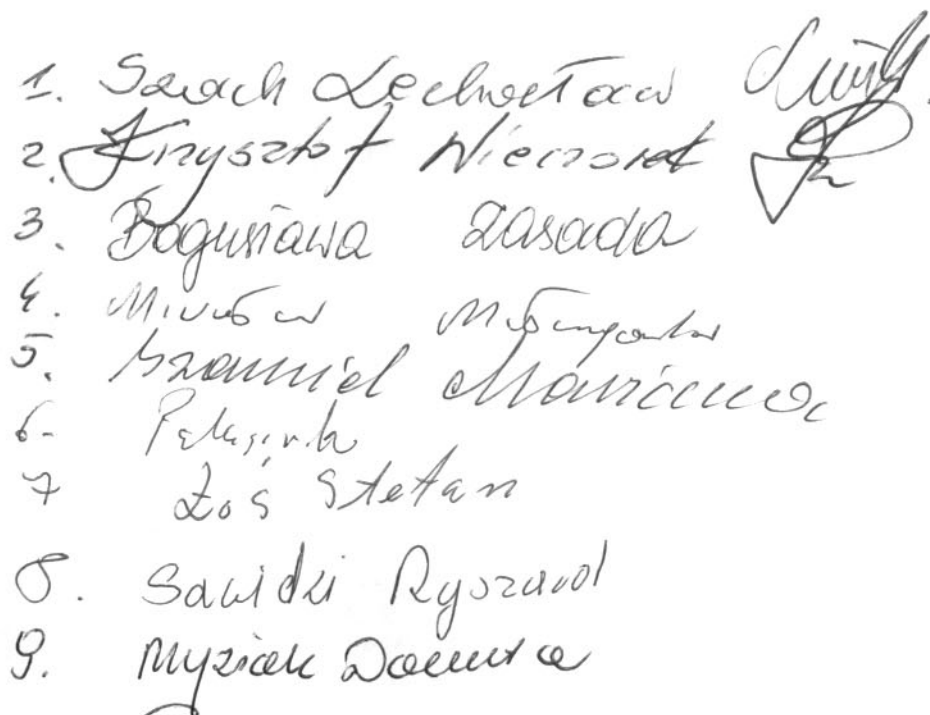 1. Szach Lechosław
2. Krzysztof Wieczorek
3. Bogusława Zasada
4. Mirosław
5. Szamiel Marianna
6-
7 Łoś Stefan
8. Sawicki Ryszard
9. Myziak Danuta